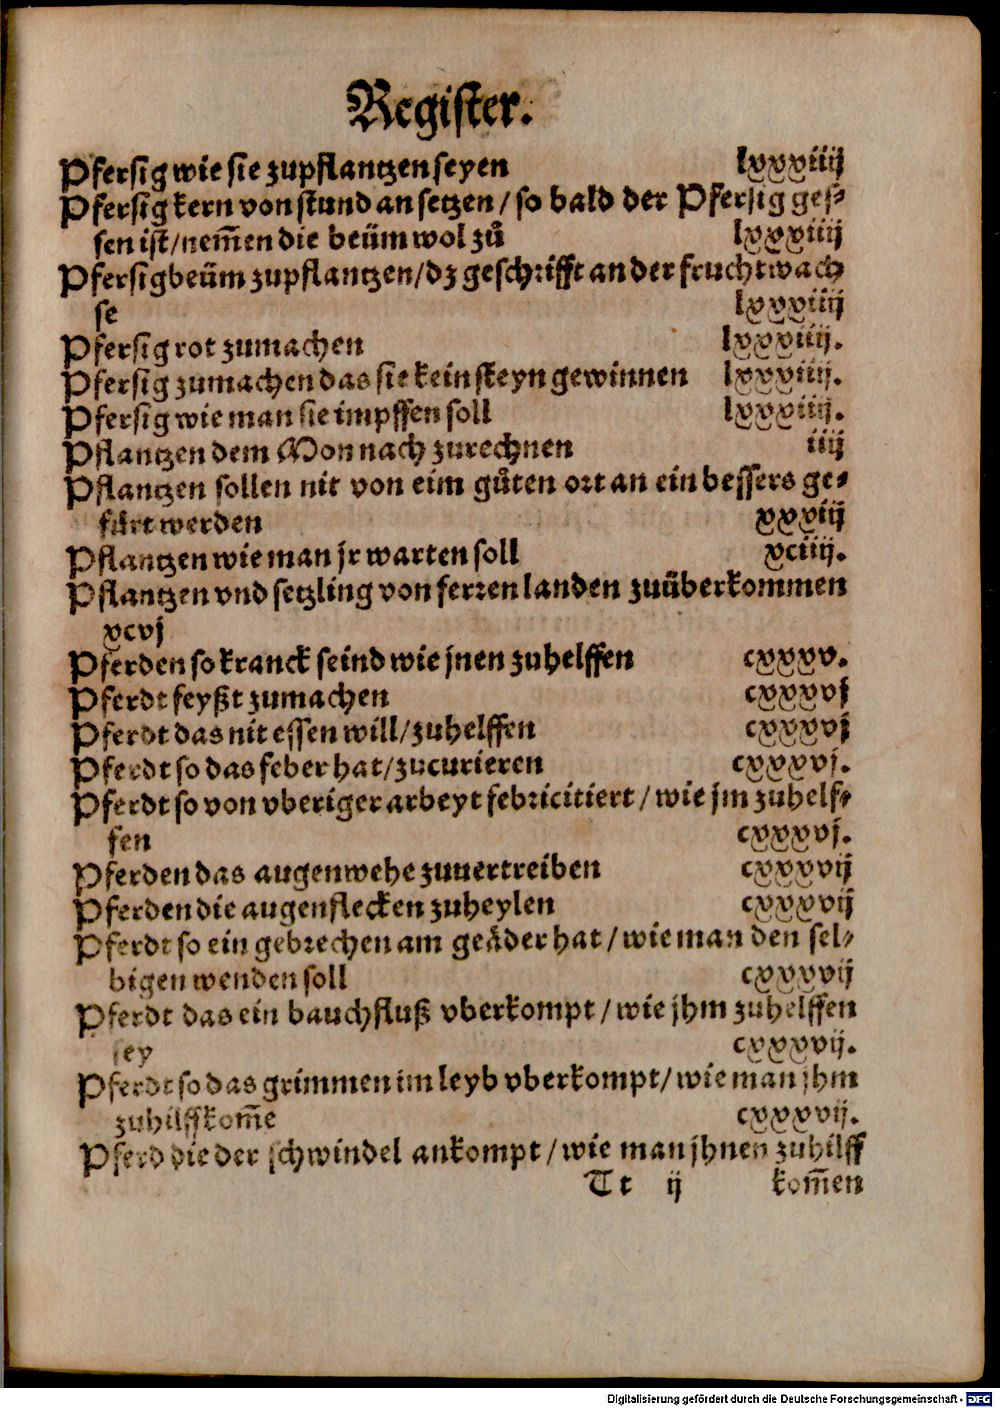 Register.
Pfersig wie sie zupflantzen seyen lxxxiiij
Pfersig kern von stund an setzen / so bald der Pfersig ges⸗
sen ist / nem̃en die beüm wol zů lxxxiiij
Pfersigbeüm zupflantzen / dz geschrifft an der frucht wach
se lxxxiiij
Pfersig rot zumachen lxxxiiij.
Pfersig zumachen das sie kein steyn gewinnen lxxxiiij.
Pfersig wie man sie impffen soll lxxxiiij.
Pflantzen dem Mon nach zurechnen iiij
Pflantzen sollen nit von eim gůten ort an ein bessers ge⸗
fürt werden xxxiij
Pflantzen wie man jr warten soll xciiij.
Pflantzen vnd setzling von ferren landen zuüberkommen
xcvj
Pferden so kranck seind wie jnen zuhelffen cxxxv.
Pferdt feyßt zumachen cxxxvj
Pferdt das nit essen will / zuhelffen cxxxvj
Pferdt so das feber hat / zucurieren cxxxvj.
Pferdt so von vberiger arbeyt febricitiert / wie jm zuhelf⸗
fen cxxxvj.
Pferden das augenwehe zuuertreiben cxxxvij
Pferden die augenflecken zuheylen cxxxvij
Pferdt so ein gebrechen am geäder hat / wie man den sel⸗
bigen wenden soll cxxxvij
Pferdt das ein bauchfluß vberkompt / wie jhm zuhelffen
sey cxxxvij.
Pferdt so das grimmen im leyb vberkompt / wie man jhm
zuhilff kom̃e cxxxvij.
Pferd die der schwindel ankompt / wie man jhnen zuhilff
Tt ij kom̃en
Digitalisierung gefördert durch die Deutsche Forschungsgemeinschaft - DFG